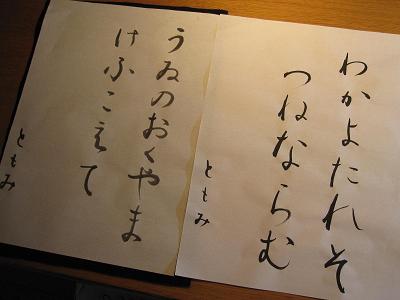 わかよたれそ
つねならむ
ともみ
うゐのおくやま
けふこえて
ともみ